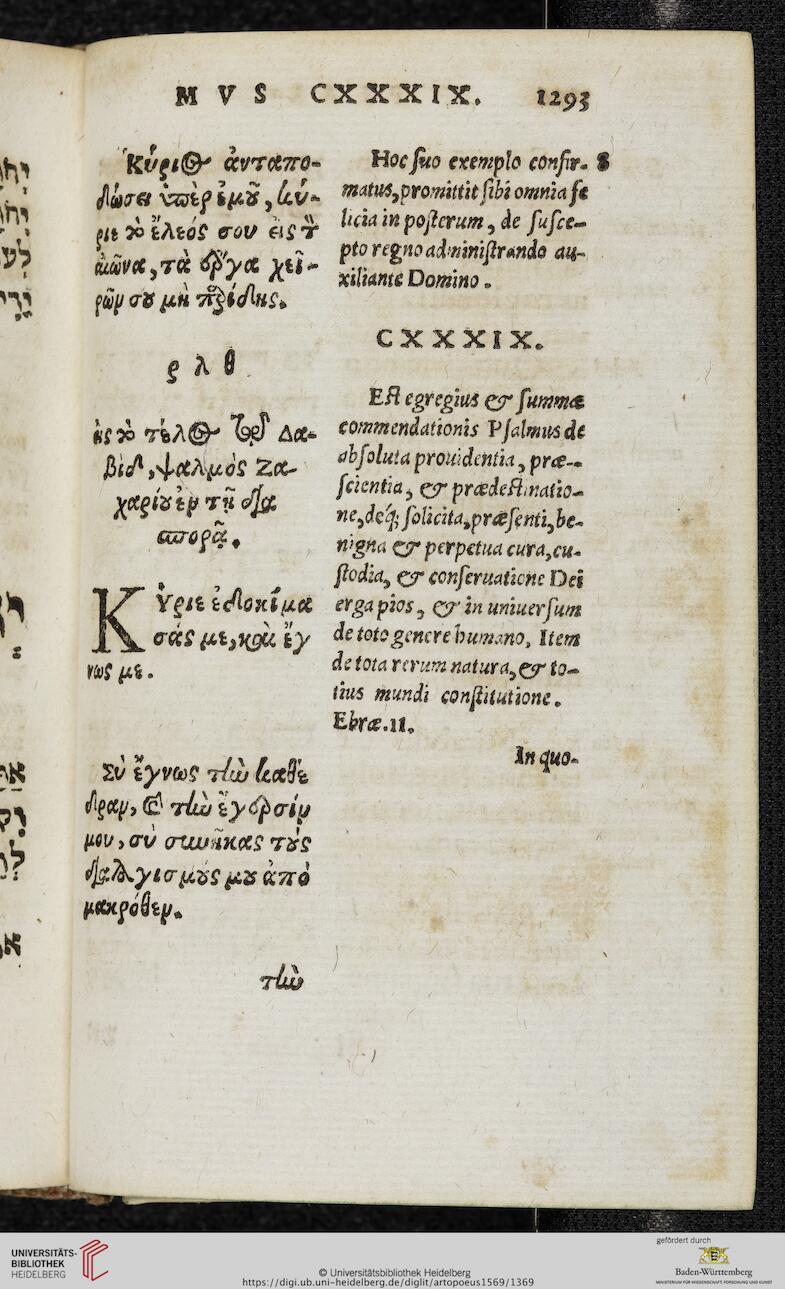 MVS CXXXIX. 1293
Κύριος ἀνταπο-
δώσει ὑπὲρ ἐμοῦ, κύ-
ριε τὸ ἔλεός σου εἰς τὸν
αἰῶνα, τὰ ἔργα χει-
ρῶν σου μὴ παρίδῃς.
ρλθ
εἰς τὸ τέλος τῷ Δα-
βὶδ, ψαλμὸς Ζα-
χαρίου ἐν τῇ δια
σπορᾷ.
Κύριε ἐδοκίμα
σάς με, καὶ ἔγ
νως με.
Σὺ ἔγνως τὴν καθέ
δραν, καὶ τὴν ἔγερσίν
μου, σὺ συνῆκας τοὺς
διαλογισμούς μου ἀπὸ
μακρόθεν.
τὴν
Hoc suo exemplo confir- 8
matus, promittit sibi omnia fe
licia in posterum, de susce-
pto regno administrando au-
xiliante Domino.
CXXXIX.
Est egregius & summæ
commendationis Psalmus de
absoluta prouidentia, præ-
scientia, & prædestinatio-
ne, deq; solicita, præsenti, be-
nigna & perpetua cura, cu-
stodia, & conseruatione Dei
erga pios, & in uniuersum
de toto genere humano, Item
de tota rerum natura, & to-
tius mundi constitutione.
Ebræ.11.
In quo-
UNIVERSITÄTS-
BIBLIOTHEK
HEIDELBERG
© Universitätsbibliothek Heidelberg
https://digi.ub.uni-heidelberg.de/diglit/artopoeus1569/1369
gefördert durch
Baden-Württemberg
MINISTERIUM FÜR WISSENSCHAFT, FORSCHUNG UND KUNST